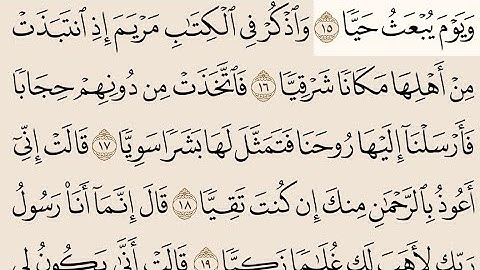 وَيَوْمَ يُبْعَثُ حَيًّا ١٥ وَاذْكُرْ فِي الْكِتَٰبِ مَرْيَمَ إِذِ انتَبَذَتْ
مِنْ أَهْلِهَا مَكَانًا شَرْقِيًّا ١٦ فَاتَّخَذَتْ مِن دُونِهِمْ حِجَابًا
فَأَرْسَلْنَآ إِلَيْهَا رُوحَنَا فَتَمَثَّلَ لَهَا بَشَرًا سَوِيًّا ١٧ قَالَتْ إِنِّيٓ
أَعُوذُ بِالرَّحْمَٰنِ مِنكَ إِن كُنتَ تَقِيًّا ١٨ قَالَ إِنَّمَآ أَنَا۠ رَسُولُ
رَبِّكِ لِأَهَبَ لَكِ غُلَٰمًا زَكِيًّا ١٩ قَالَتْ أَنَّىٰ يَكُونُ لِي